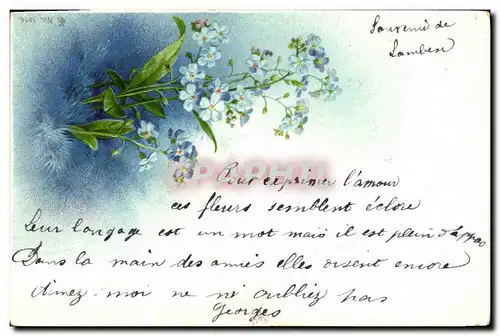 Souvenir de
Lambese
Pour exprimer l'amour
ces fleurs semblent éclore
Leur langage est un mot mais il est plein
Dans la main des amies elles disent encore
Aimez-moi ne m'oubliez pas
Georges